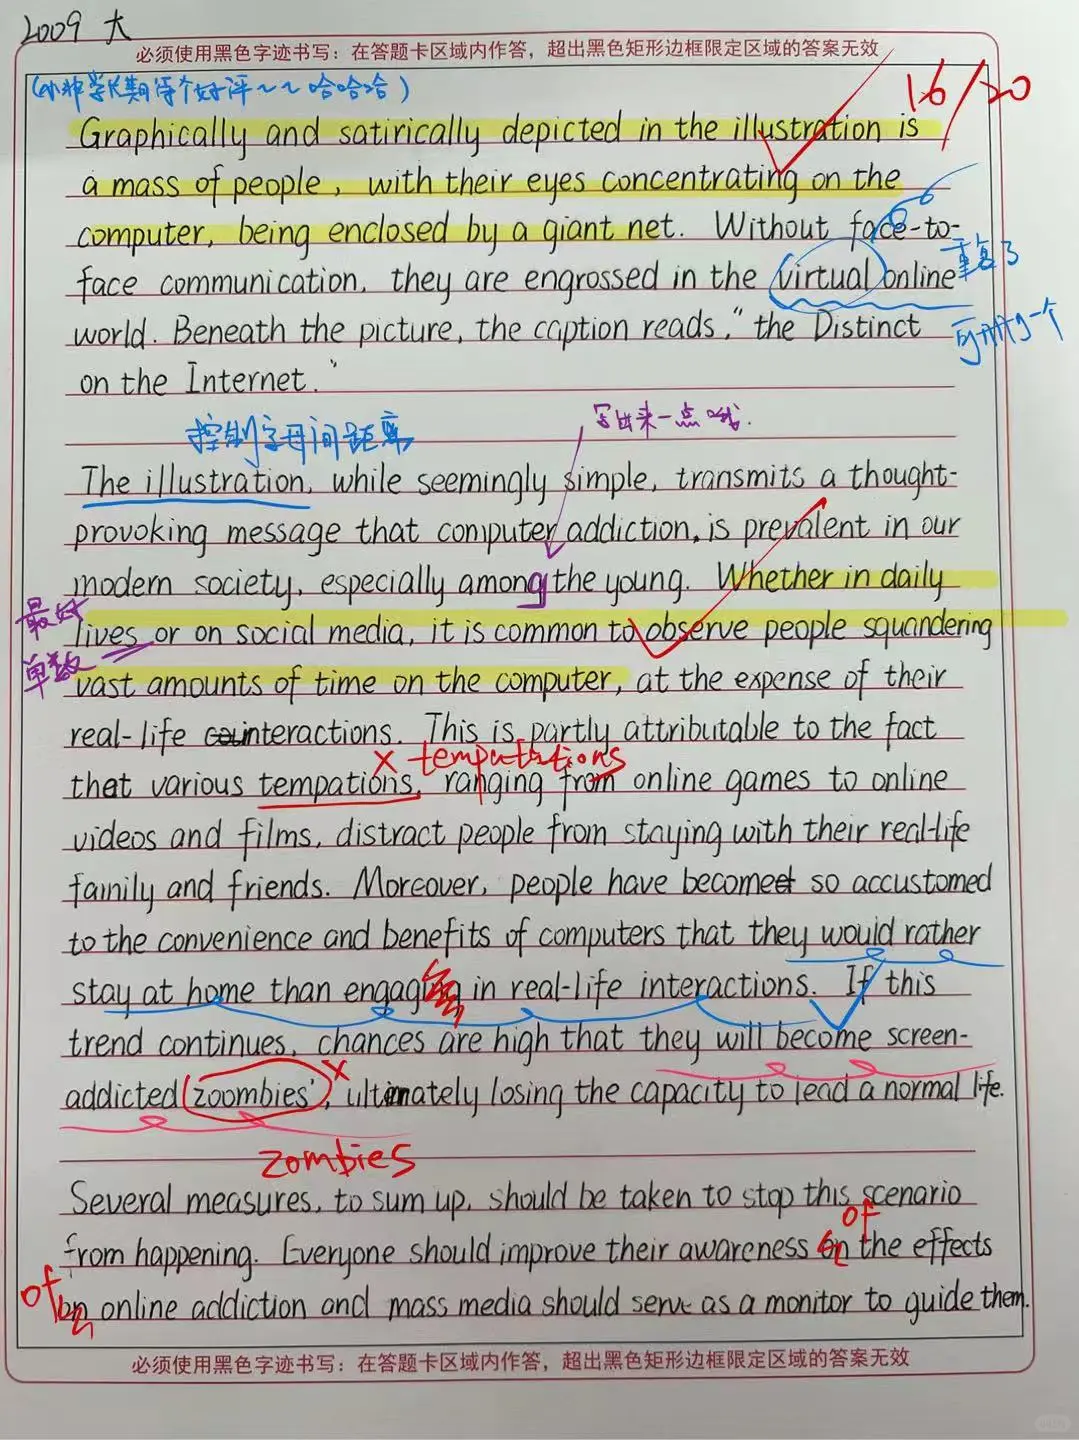 2009 大
必须使用黑色字迹书写：在答题卡区域内作答，超出黑色矩形边框限定区域的答案无效
16/20
Graphically and satirically depicted in the illustration is
a mass of people, with their eyes concentrating on the
computer, being enclosed by a giant net. Without face-to-
face communication, they are engrossed in the virtual online
重复了
world. Beneath the picture, the caption reads, "the Distinct
可删一个
on the Internet."
控制字母间距离
写出来一点哦.
The illustration, while seemingly simple, transmits a thought-
provoking message that computer addiction, is prevalent in our
modern society, especially among the young. Whether in daily
最好
lives or on social media, it is common to observe people squandering
单数
vast amounts of time on the computer, at the expense of their
real-life interactions. This is partly attributable to the fact
× temputations
that various tempations, ranging from online games to online
videos and films, distract people from staying with their real-life
family and friends. Moreover, people have become so accustomed
to the convenience and benefits of computers that they would rather
stay at home than engag in real-life interactions. If this
trend continues, chances are high that they will become screen-
addicted 'zoombies', ultimately losing the capacity to lead a normal life.
×
zombies
Several measures, to sum up, should be taken to stop this scenario
of
from happening. Everyone should improve their awareness on the effects
of
on online addiction and mass media should serve as a monitor to guide them.
必须使用黑色字迹书写：在答题卡区域内作答，超出黑色矩形边框限定区域的答案无效